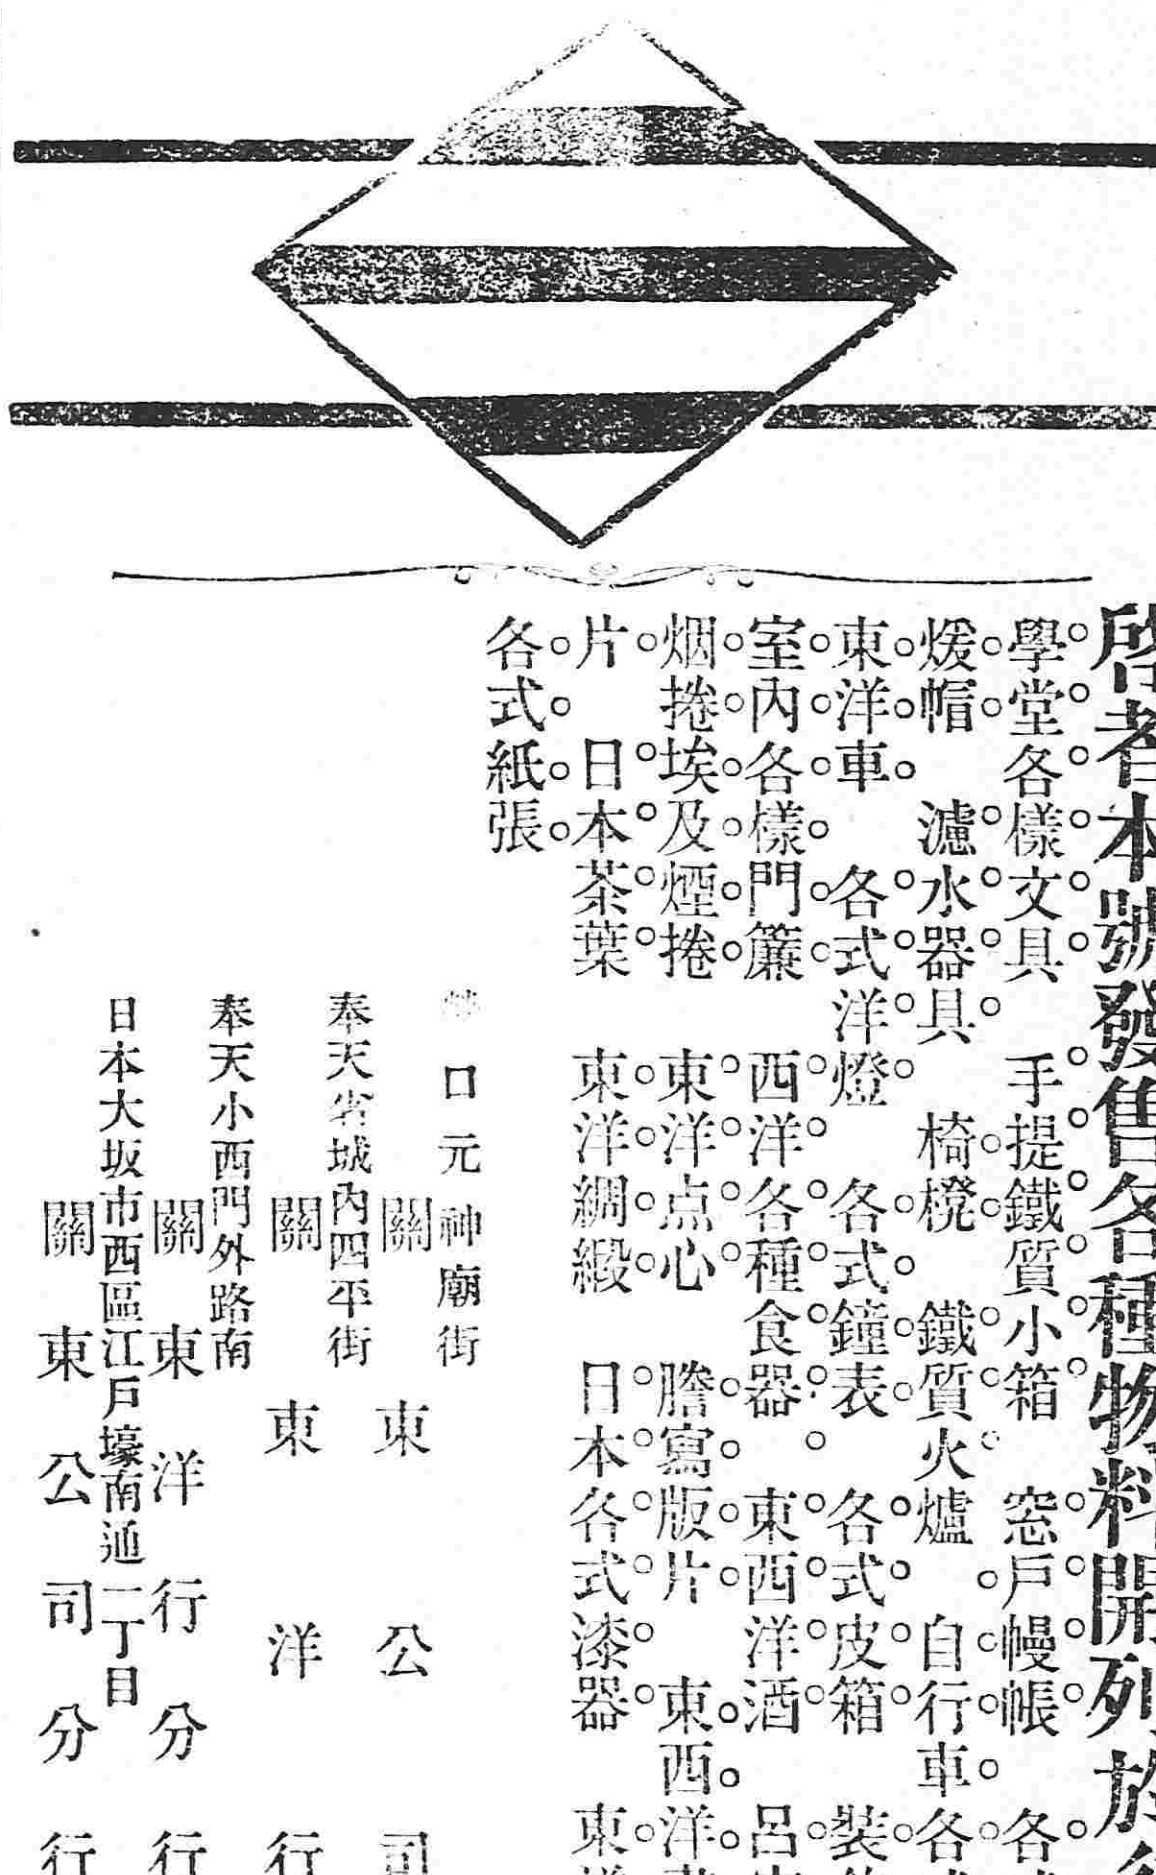 啓者本號發售各種物料開列於
學堂各樣文具 手提鐵質小箱 窓戶幔帳 各
煖帽 濾水器具 椅櫈 鐵質火爐 自行車 各
東洋車 各式洋燈 各式鐘表 各式皮箱 裝
室內各樣門簾 西洋各種食器 東西洋酒 呂
烟捲埃及煙捲 東洋点心 謄寫版片 東西洋
片 日本茶葉 東洋綢緞 日本各式漆器 東
各式紙張
口元神廟街
關東公司
奉天省城內四平街
關東洋行
奉天小西門外路南
關東洋行分行
日本大坂市西區江戶壕南通二丁目
關東公司分行